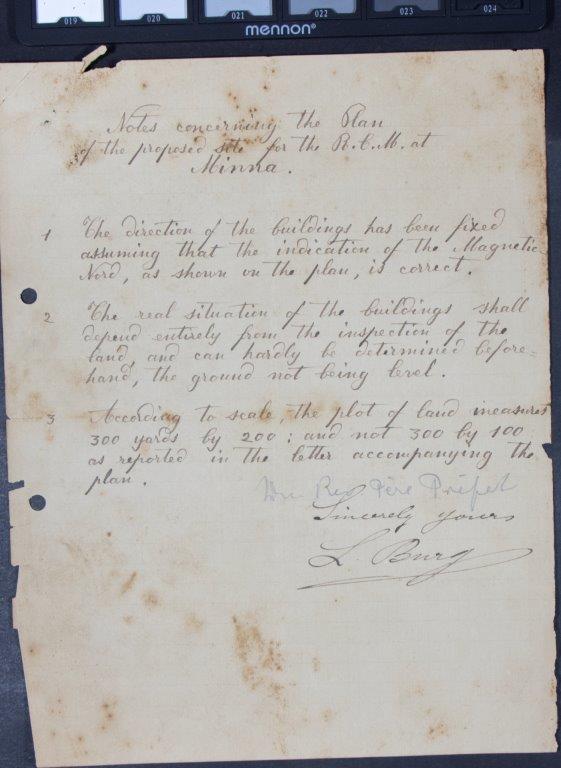 019 020 021 022 023 024
mennon®
Notes concerning the Plan
of the proposed site for the R.C.M. at
Minna.
1 The direction of the buildings has been fixed
assuming that the indication of the Magnetic
Nord, as shown on the plan, is correct.
2 The real situation of the buildings shall
depend entirely from the inspection of the
land, and can hardly be determined before=
hand, the ground not being level.
3 According to scale, the plot of land measures
300 yards by 200; and not 300 by 100
as reported in the letter accompanying the
plan.
Rev Père
Sincerely yours
L. Burg